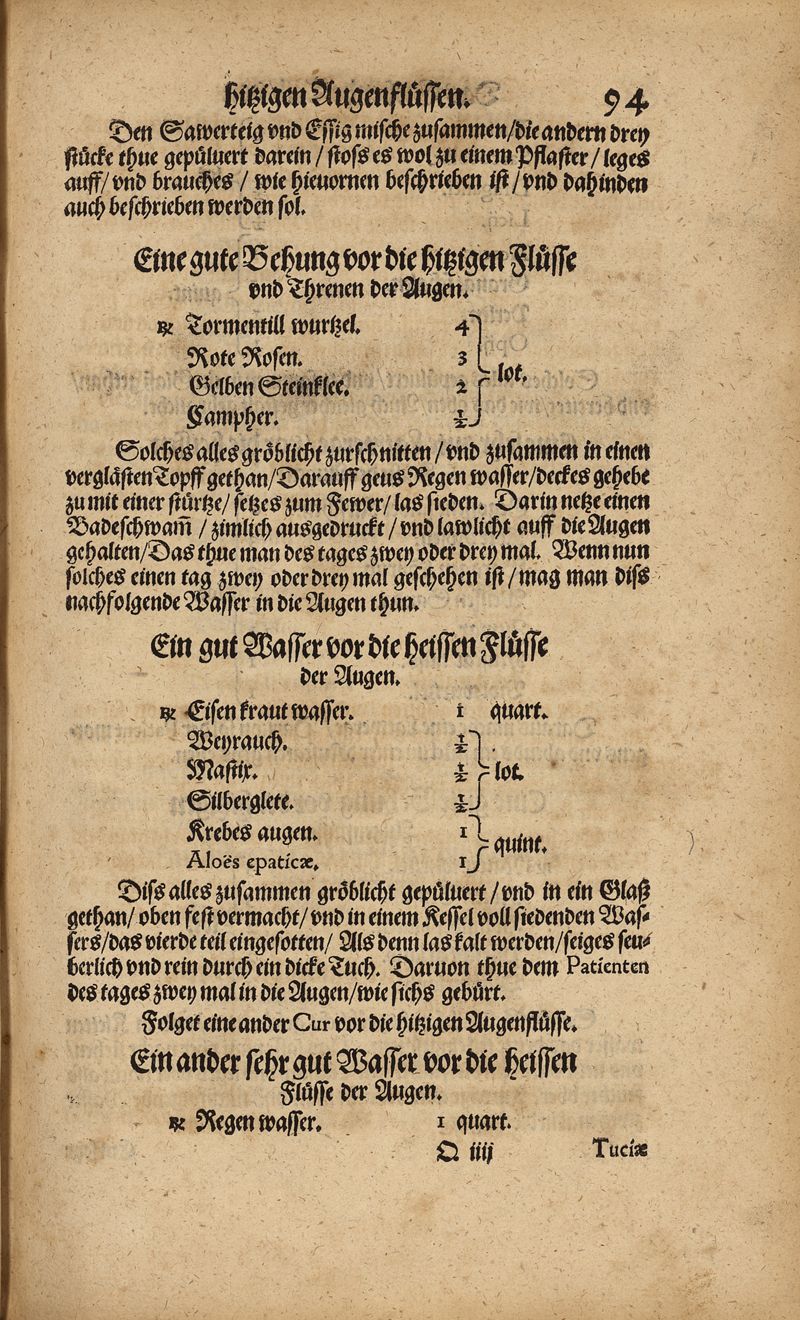 hitzigen Augenflüssen. 94
Den Sawerteig vnd Essig mische zusammen/die andern drey
stücke thue gepüluert darein / stoss es wol zu einem Pflaster / leges
auff/ vnd brauches / wie hieuornen beschrieben ist / vnd dahinden
auch beschrieben werden sol.
Eine gute Behung vor die hitzigen Flüsse
vnd Threnen der Augen.
℞ Tormentill wurtzel. 4
Rote Rosen. 3
Gelben Steinklee. 2 lot.
Campher. ½
Solches alles gröblicht zurschnitten / vnd zusammen in einen
verglästen Topff gethan/Darauff geus Regen wasser/deckes gehebe
zu mit einer stürtze/ setzes zum Fewer/ las sieden. Darin netze einen
Badeschwam̄ / zimlich ausgedruckt / vnd lawlicht auff die Augen
gehalten/Das thue man des tages zwey oder drey mal. Wenn nun
solches einen tag zwey oder drey mal geschehen ist / mag man diss
nachfolgende Wasser in die Augen thun.
Ein gut Wasser vor die heissen Flüsse
der Augen.
℞ Eisen kraut wasser. 1 quart.
Weyrauch. ½
Mastix. ½ lot.
Silberglete. ½
Krebes augen. 1 quint.
Aloës epaticæ. 1
Diss alles zusammen gröblicht gepüluert / vnd in ein Glaß
gethan/ oben fest vermacht/ vnd in einem Kessel voll siedenden Was⸗
sers/das vierde teil eingesotten/ Als denn las kalt werden/seiges seu⸗
berlich vnd rein durch ein dicke Tuch. Daruon thue dem Patienten
des tages zwey mal in die Augen/wie sichs gebürt.
Folget eine ander Cur vor die hitzigen Augenflüsse.
Ein ander sehr gut Wasser vor die heissen
Flüsse der Augen.
℞ Regen wasser. 1 quart.
Q iiij Tuciæ